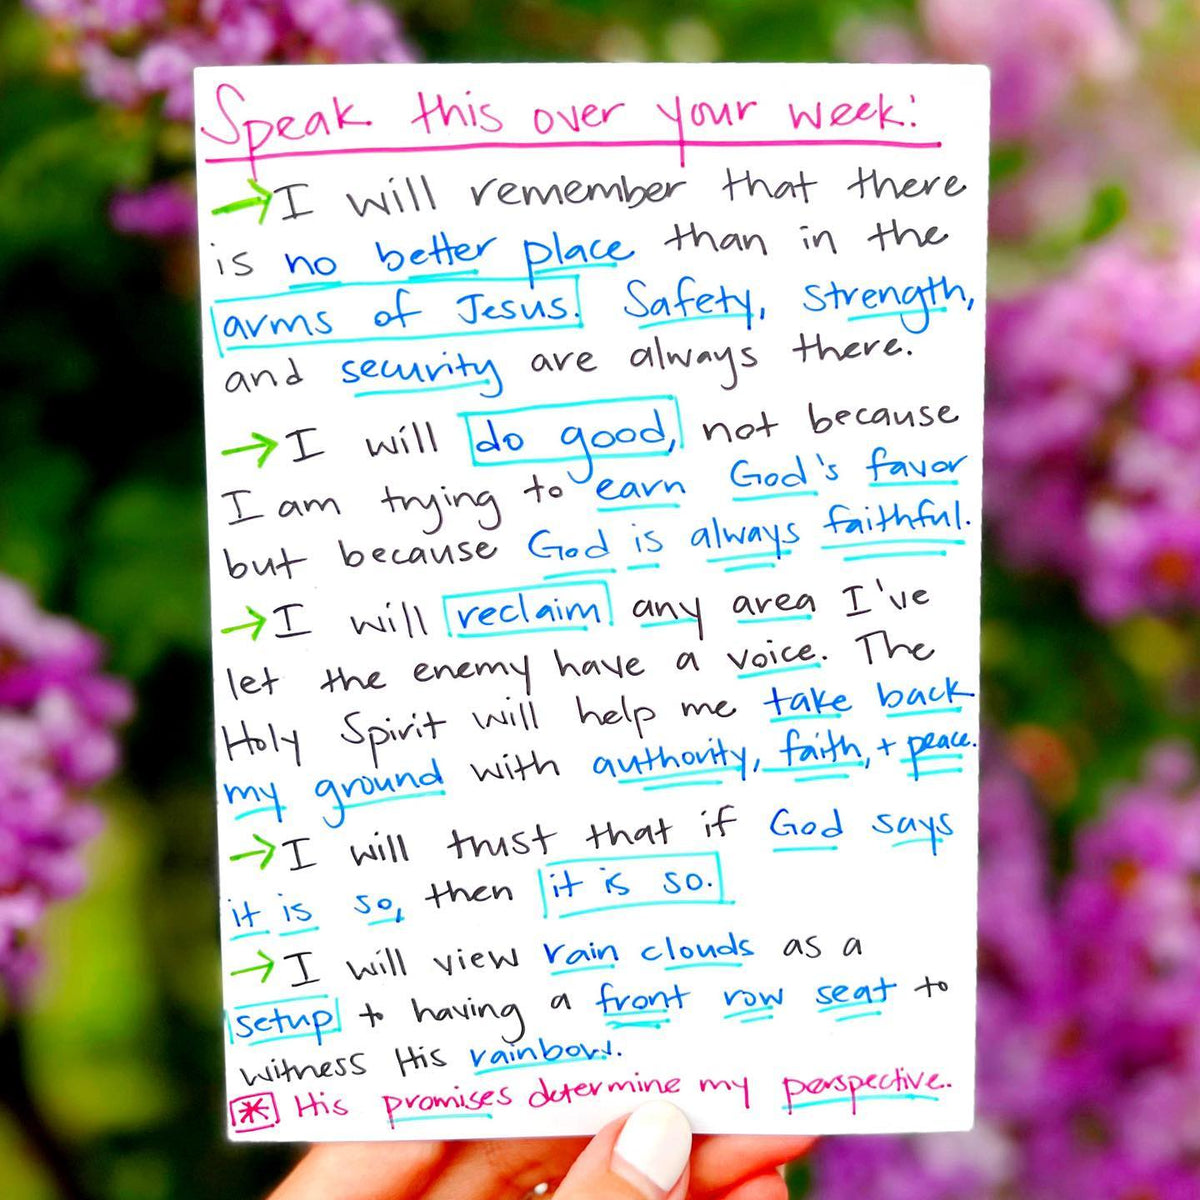 Speak this over your week:
→ I will remember that there
is no better place than in the
arms of Jesus. Safety, strength,
and security are always there.
→ I will do good, not because
I am trying to earn God's favor
but because God is always faithful.
→ I will reclaim any area I've
let the enemy have a voice. The
Holy Spirit will help me take back
my ground with authority, faith, + peace.
→ I will trust that if God says
it is so, then it is so.
→ I will view rain clouds as a
setup to having a front row seat to
witness His rainbow.
* His promises determine my perspective.